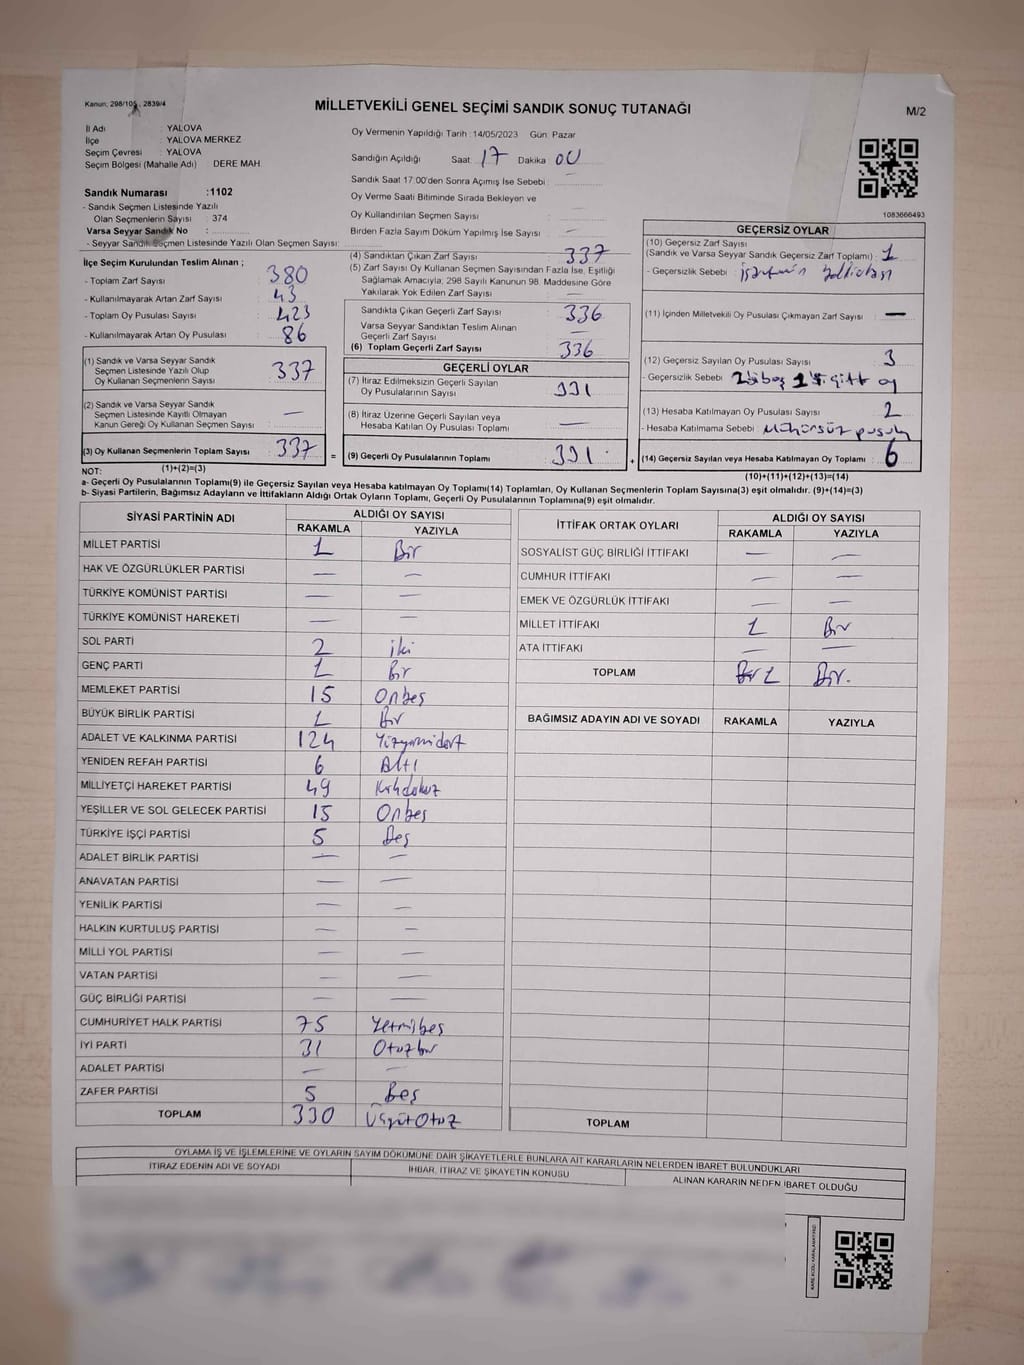 Kanun: 298/105, 2839/4
MİLLETVEKİLİ GENEL SEÇİMİ SANDIK SONUÇ TUTANAĞI
M/2
İl Adı : YALOVA
İlçe : YALOVA MERKEZ
Seçim Çevresi : YALOVA
Seçim Bölgesi (Mahalle Adı) DERE MAH.
Oy Vermenin Yapıldığı Tarih :14/05/2023 Gün: Pazar
Sandığın Açıldığı Saat: 17 Dakika 00
Sandık Saat 17:00'den Sonra Açılmış İse Sebebi :
Oy Verme Saati Bitiminde Sırada Bekleyen ve
Oy Kullandırılan Seçmen Sayısı :
Birden Fazla Sayım Döküm Yapılmış İse Sayısı :
1083666493
Sandık Numarası :1102
- Sandık Seçmen Listesinde Yazılı
Olan Seçmenlerin Sayısı : 374
Varsa Seyyar Sandık No :
- Seyyar Sandık Seçmen Listesinde Yazılı Olan Seçmen Sayısı:
İlçe Seçim Kurulundan Teslim Alınan ;
- Toplam Zarf Sayısı : 380
- Kullanılmayarak Artan Zarf Sayısı : 43
- Toplam Oy Pusulası Sayısı : 423
- Kullanılmayarak Artan Oy Pusulası : 86
(1) Sandık ve Varsa Seyyar Sandık
Seçmen Listesinde Yazılı Olup
Oy Kullanan Seçmenlerin Sayısı : 337
(2) Sandık ve Varsa Seyyar Sandık
Seçmen Listesinde Kayıtlı Olmayan
Kanun Gereği Oy Kullanan Seçmen Sayısı : —
(3) Oy Kullanan Seçmenlerin Toplam Sayısı : 337 =
(4) Sandıktan Çıkan Zarf Sayısı : 337
(5) Zarf Sayısı Oy Kullanan Seçmen Sayısından Fazla İse, Eşitliği
Sağlamak Amacıyla; 298 Sayılı Kanunun 98. Maddesine Göre
Yakılarak Yok Edilen Zarf Sayısı : —
Sandıkta Çıkan Geçerli Zarf Sayısı : 336
Varsa Seyyar Sandıktan Teslim Alınan
Geçerli Zarf Sayısı : —
(6) Toplam Geçerli Zarf Sayısı : 336
GEÇERLİ OYLAR
(7) İtiraz Edilmeksizin Geçerli Sayılan
Oy Pusulalarının Sayısı : 331
(8) İtiraz Üzerine Geçerli Sayılan veya
Hesaba Katılan Oy Pusulası Toplamı : —
(9) Geçerli Oy Pusulalarının Toplamı : 331 +
GEÇERSİZ OYLAR
(10) Geçersiz Zarf Sayısı
(Sandık ve Varsa Seyyar Sandık Geçersiz Zarf Toplamı) : 1
- Geçersizlik Sebebi :
(11) İçinden Milletvekili Oy Pusulası Çıkmayan Zarf Sayısı : —
(12) Geçersiz Sayılan Oy Pusulası Sayısı : 3
- Geçersizlik Sebebi : oy
(13) Hesaba Katılmayan Oy Pusulası Sayısı : 2
- Hesaba Katılmama Sebebi : Mühürsüz pusula
(14) Geçersiz Sayılan veya Hesaba Katılmayan Oy Toplamı : 6
NOT: (1)+(2)=(3)
(10)+(11)+(12)+(13)=(14)
a- Geçerli Oy Pusulalarının Toplamı(9) ile Geçersiz Sayılan veya Hesaba Katılmayan Oy Toplamı(14) Toplamları, Oy Kullanan Seçmenlerin Toplam Sayısına(3) eşit olmalıdır. (9)+(14)=(3)
b- Siyasi Partilerin, Bağımsız Adayların ve İttifakların Aldığı Ortak Oyların Toplamı, Geçerli Oy Pusulalarının Toplamına(9) eşit olmalıdır.
SİYASİ PARTİNİN ADI ALDIĞI OY SAYISI
RAKAMLA YAZIYLA
MİLLET PARTİSİ 1 Bir
HAK VE ÖZGÜRLÜKLER PARTİSİ — —
TÜRKİYE KOMÜNİST PARTİSİ — —
TÜRKİYE KOMÜNİST HAREKETİ — —
SOL PARTİ 2 iki
GENÇ PARTİ 1 Bir
MEMLEKET PARTİSİ 15 Onbeş
BÜYÜK BİRLİK PARTİSİ 1 Bir
ADALET VE KALKINMA PARTİSİ 124 Yüzyirmidört
YENİDEN REFAH PARTİSİ 6 Altı
MİLLİYETÇİ HAREKET PARTİSİ 49 Kırkdokuz
YEŞİLLER VE SOL GELECEK PARTİSİ 15 Onbeş
TÜRKİYE İŞÇİ PARTİSİ 5 Beş
ADALET BİRLİK PARTİSİ — —
ANAVATAN PARTİSİ — —
YENİLİK PARTİSİ — —
HALKIN KURTULUŞ PARTİSİ — —
MİLLİ YOL PARTİSİ — —
VATAN PARTİSİ — —
GÜÇ BİRLİĞİ PARTİSİ — —
CUMHURİYET HALK PARTİSİ 75 Yetmişbeş
İYİ PARTİ 31 Otuzbir
ADALET PARTİSİ — —
ZAFER PARTİSİ 5 Beş
TOPLAM 330 Üçyüzotuz
İTTİFAK ORTAK OYLARI ALDIĞI OY SAYISI
RAKAMLA YAZIYLA
SOSYALİST GÜÇ BİRLİĞİ İTTİFAKI — —
CUMHUR İTTİFAKI — —
EMEK VE ÖZGÜRLÜK İTTİFAKI — —
MİLLET İTTİFAKI 1 Bir
ATA İTTİFAKI — —
TOPLAM Bir 1 Bir.
BAĞIMSIZ ADAYIN ADI VE SOYADI RAKAMLA YAZIYLA
TOPLAM
OYLAMA İŞ VE İŞLEMLERİNE VE OYLARIN SAYIM DÖKÜMÜNE DAİR ŞİKAYETLERLE BUNLARA AİT KARARLARIN NELERDEN İBARET BULUNDUKLARI
İTİRAZ EDENİN ADI VE SOYADI İHBAR, İTİRAZ VE ŞİKAYETİN KONUSU ALINAN KARARIN NEDEN İBARET OLDUĞU